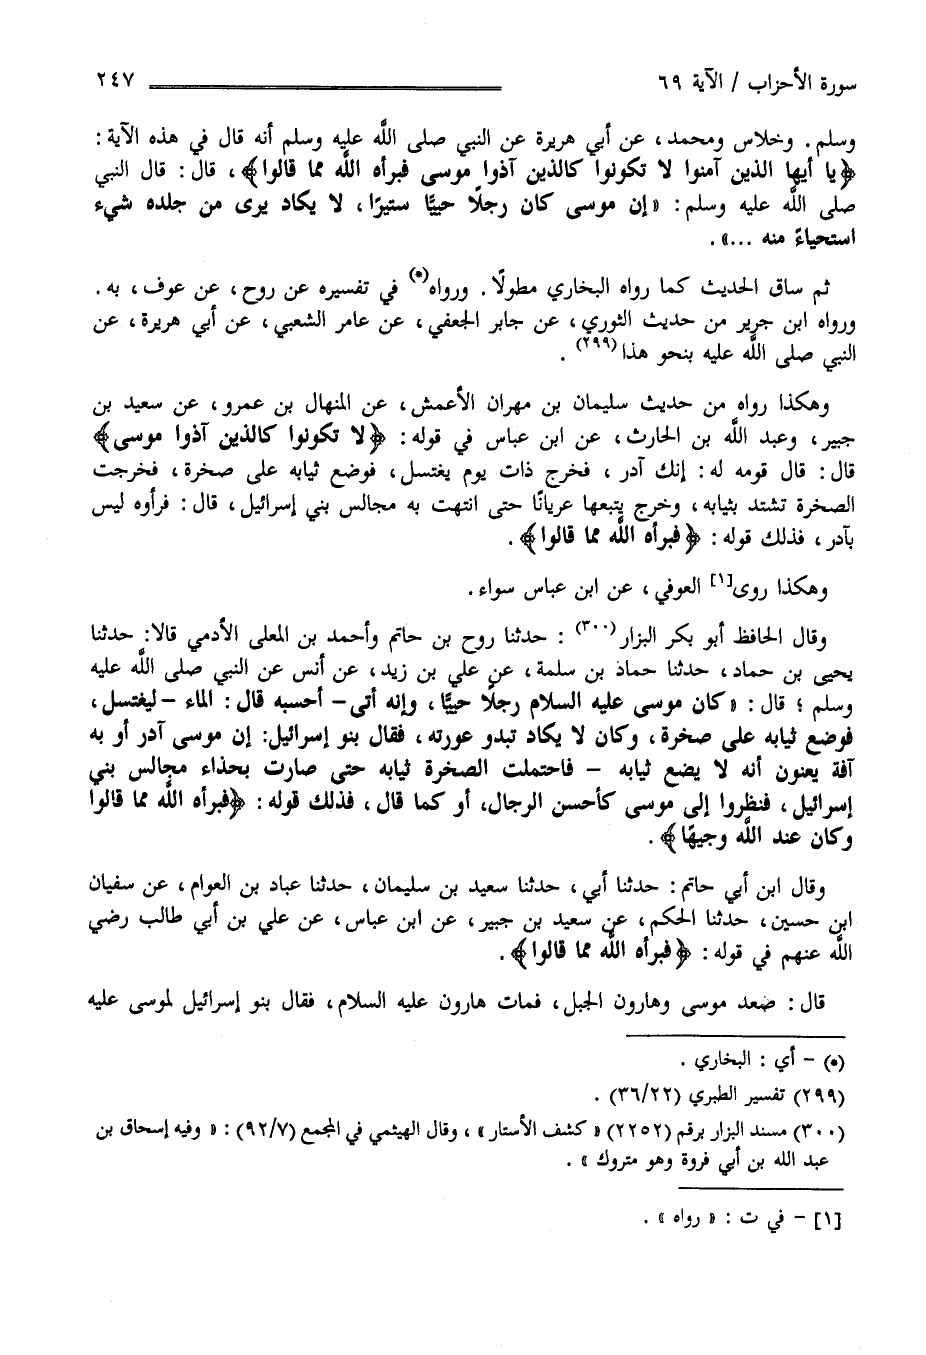 سورة الأحزاب / الآية ٦٩ ٢٤٧
وسلم . وخلاس ومحمد ، عن أبي هريرة عن النبي صلى اللَّه عليه وسلم أنه قال في هذه الآية :
﴿ يا أيها الذين آمنوا لا تكونوا كالذين آذوا موسى فبرأه اللَّه مما قالوا ﴾ ، قال : قال النبي
صلى اللَّه عليه وسلم : « إن موسى كان رجلًا حييًّا ستيرًا ، لا يكاد يرى من جلده شيء
استحياءً منه ... » .
ثم ساق الحديث كما رواه البخاري مطولًا . ورواه(*) في تفسيره عن روح ، عن عوف ، به .
ورواه ابن جرير من حديث الثوري ، عن جابر الجعفي ، عن عامر الشعبي ، عن أبي هريرة ، عن
النبي صلى اللَّه عليه بنحو هذا(٢٩٩) .
وهكذا رواه من حديث سليمان بن مهران الأعمش ، عن المنهال بن عمرو ، عن سعيد بن
جبير ، وعبد اللَّه بن الحارث ، عن ابن عباس في قوله : ﴿ لا تكونوا كالذين آذوا موسى ﴾
قال : قال قومه له : إنك آدر ، فخرج ذات يوم يغتسل ، فوضع ثيابه على صخرة ، فخرجت
الصخرة تشتد بثيابه ، وخرج يتبعها عريانًا حتى انتهت به مجالس بني إسرائيل ، قال : فرأوه ليس
بآدر ، فذلك قوله : ﴿ فبرأه اللَّه مما قالوا ﴾ .
وهكذا روى[١] العوفي ، عن ابن عباس سواء .
وقال الحافظ أبو بكر البزار(٣٠٠) : حدثنا روح بن حاتم وأحمد بن المعلى الأدمي قالا: حدثنا
يحيى بن حماد ، حدثنا حماد بن سلمة ، عن علي بن زيد ، عن أنس عن النبي صلى اللَّه عليه
وسلم ؛ قال : « كان موسى عليه السلام رجلًا حييًّا ، وإنه أتى - أحسبه قال : الماء - ليغتسل ،
فوضع ثيابه على صخرة ، وكان لا يكاد تبدو عورته ، فقال بنو إسرائيل: إن موسى آدر أو به
آفة يعنون أنه لا يضع ثيابه - فاحتملت الصخرة ثيابه حتى صارت بحذاء مجالس بني
إسرائيل ، فنظروا إلى موسى كأحسن الرجال، أو كما قال ، فذلك قوله : ﴿ فبرأه اللَّه مما قالوا
وكان عند اللَّه وجيهًا ﴾ .
وقال ابن أبي حاتم : حدثنا أبي ، حدثنا سعيد بن سليمان ، حدثنا عباد بن العوام ، عن سفيان
ابن حسين ، حدثنا الحكم ، عن سعيد بن جبير ، عن ابن عباس ، عن علي بن أبي طالب رضي
اللَّه عنهم في قوله : ﴿ فبرأه اللَّه مما قالوا ﴾ .
قال : صعد موسى وهارون الجبل ، فمات هارون عليه السلام ، فقال بنو إسرائيل لموسى عليه
(*) - أي : البخاري .
(٢٩٩) تفسير الطبري (٣٦/٢٢) .
(٣٠٠) مسند البزار برقم (٢٢٥٢) « كشف الأستار » ، وقال الهيثمي في المجمع (٩٢/٧) : « وفيه إسحاق بن
عبد الله بن أبي فروة وهو متروك » .
[١] - في ت : « رواه » .